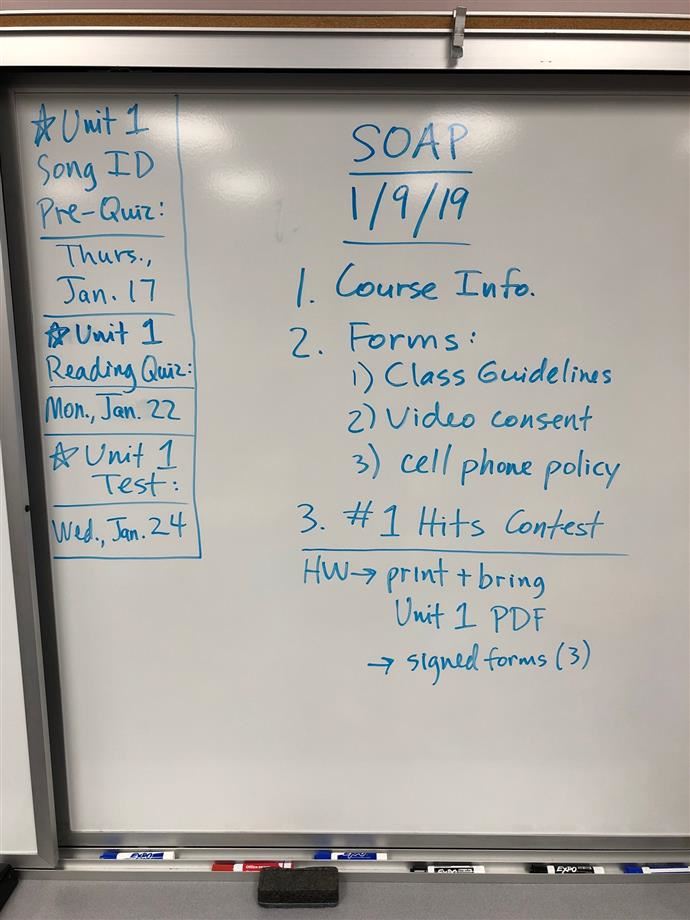 ☆ Unit 1
Song ID
Pre-Quiz:
Thurs.,
Jan. 17
☆ Unit 1
Reading Quiz:
Mon., Jan. 22
☆ Unit 1
Test:
Wed., Jan. 24
SOAP
1/9/19
1. Course Info.
2. Forms:
1) Class Guidelines
2) Video consent
3) cell phone policy
3. #1 Hits Contest
HW → print + bring
Unit 1 PDF
→ signed forms (3)
EXPO
EXPO
EXPO
EXPO